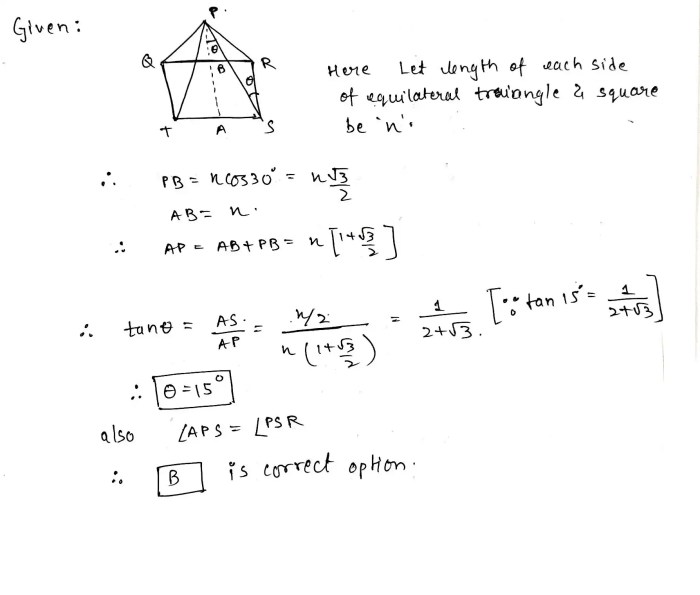 Given:
P.
Q
θ
B
R
θ
T
A
S
Here Let length of each side
of equilateral traiangle & square
be 'n'.
∴ PB = n cos30° = n√3/2
AB = n.
∴ AP = AB + PB = n [1+√3/2]
∴ tanθ = AS/AP = n/2 / n(1+√3/2) = 1/2+√3. [∵ tan 15° = 1/2+√3]
∴ θ = 15°
also ∠APS = ∠PSR
∴ B is correct option.